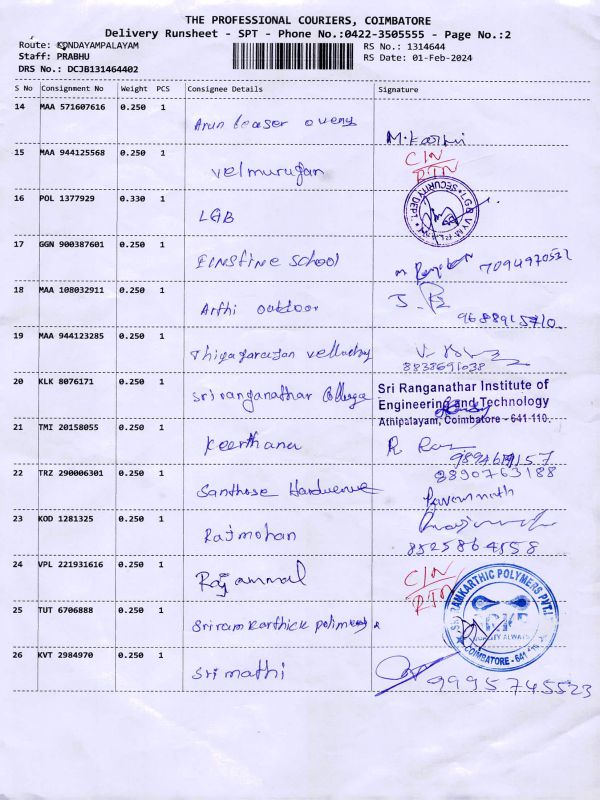 THE PROFESSIONAL COURIERS, COIMBATORE
Delivery Runsheet - SPT - Phone No.:0422-3505555 - Page No.:2
Route: KONDAYAMPALAYAM
Staff: PRABHU
DRS No.: DCJB131464402
RS No.: 1314644
RS Date: 01-Feb-2024
S No Consignment No Weight PCS Consignee Details Signature
14 MAA 571607616 0.250 1 Arun
15 MAA 944125568 0.250 1 Velmurugan C/N RTN
16 POL 1377929 0.330 1 LGB SECURITY DEPT.
17 GGN 900387601 0.250 1 EINSTINE School
18 MAA 108032911 0.250 1 Arthi outdoor
19 MAA 944123285 0.250 1 Thiyagarajan
20 KLK 8076171 0.250 1 Sri ranganathar College
Sri Ranganathar Institute of
Engineering and Technology
Athipalayam, Coimbatore - 641 110.
21 TMI 20158055 0.250 1 Keerthana
22 TRZ 290006301 0.250 1 Santhose 8890763188
23 KOD 1281325 0.250 1 Rajmohan
8525864558
24 VPL 221931616 0.250 1 Rajammal C/N RTN
25 TUT 6706888 0.250 1 Sriram Karthick
SRI RAMKARTHIC POLYMERS PVT.LTD COIMBATORE - 641
26 KVT 2984970 0.250 1 Sri mathi 9995745523